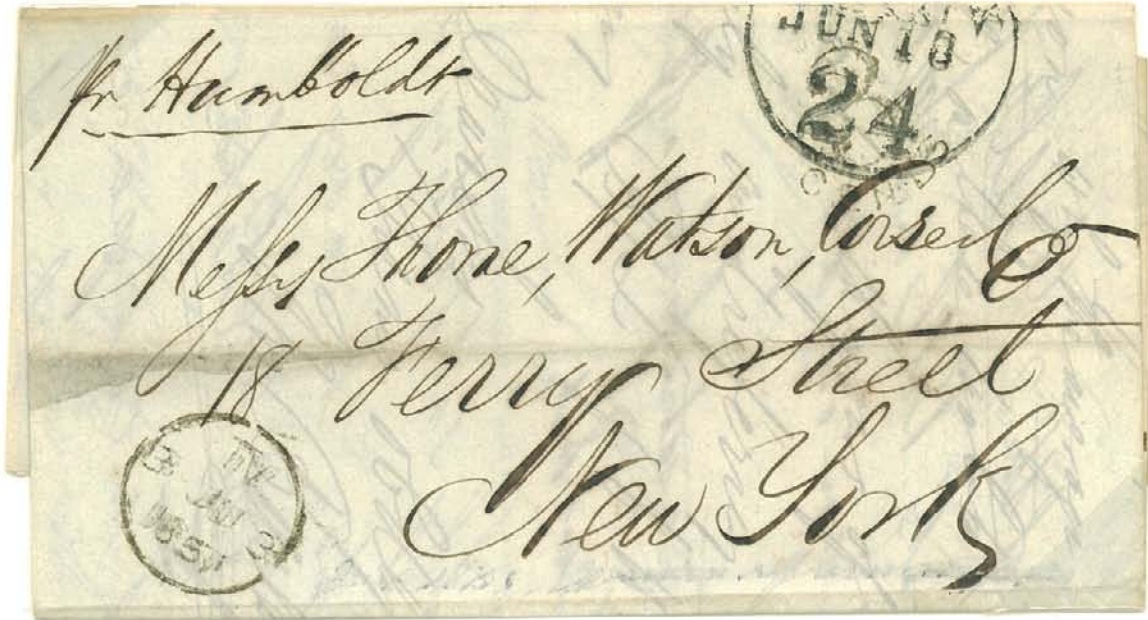 pr Humboldt
JUN 10
24
Messrs Thorne, Watson, Corse & Co
18 Ferry Street
New York